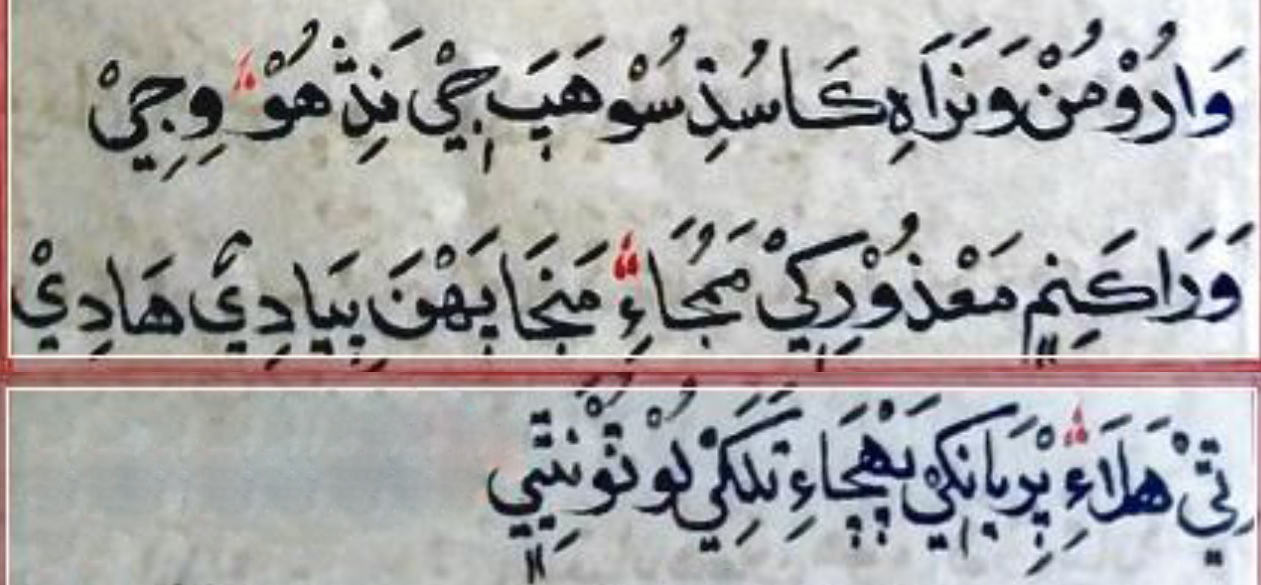 وَارُوْ مُنْ وَنَرَاهِ کَاسُدِ سُوْ هَيَبِ جِيْ نَدِ هُوْ ؞ وِجِيْ
وَرَاکَنِمِ مَعْذُوْرِکِيْ مَجُاءِ ؞ مَنجَا بَهْنَ بِيَادِيْ هَادِيْ
تِيْ هَلَاءِ ؞ پِرْيَانکِيْ پَهْچَاءِ تِلَکِيْ لُوْ نُوْنِتِيْ